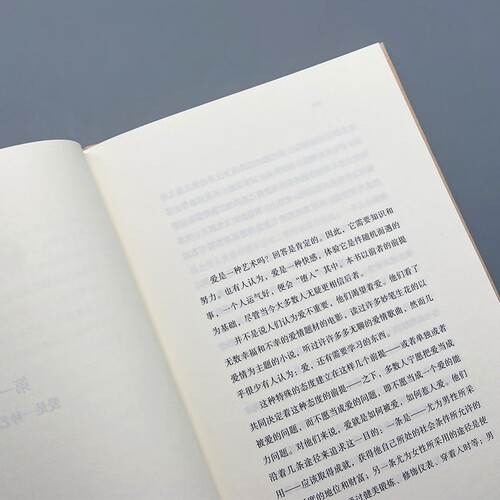 爱是一种艺术吗?回答是肯定的。因此,它需要知识和
努力。也有人认为,爱是一种快感,体验它是件随机而遇的
事,一个人运气好,便会“堕入”其中。本书以前者的前提
为基础,尽管当今大多数人无疑更相信后者。
并不是说人们认为爱不重要。他们渴望着爱。他们看了
无数幸福和不幸的爱情题材的电影,读过许多妙笔生花的以
爱情为主题的小说,听过许许多多无聊的爱情歌曲,然而几
乎很少有人认为,爱,还有需要学习的东西。
这种特殊的态度建立在这样几个前提——或者单独或者
共同决定着这种态度的前提——之下,多数人宁愿把爱当成
被爱的问题,而不愿当成爱的问题,即不愿当成一个爱的能
力问题。对他们来说,爱就是如何被爱,如何惹人爱。他们
沿着几条途径来追求这一目的:一条是——尤为男性所采
用——应该取得成就,获得他自己所处的社会条件所允许的
的地位和财富;另一条尤为女性所采用的途径是使
过健美锻炼、修饰仪表、穿着入时等;男
第一
爱是一种艺